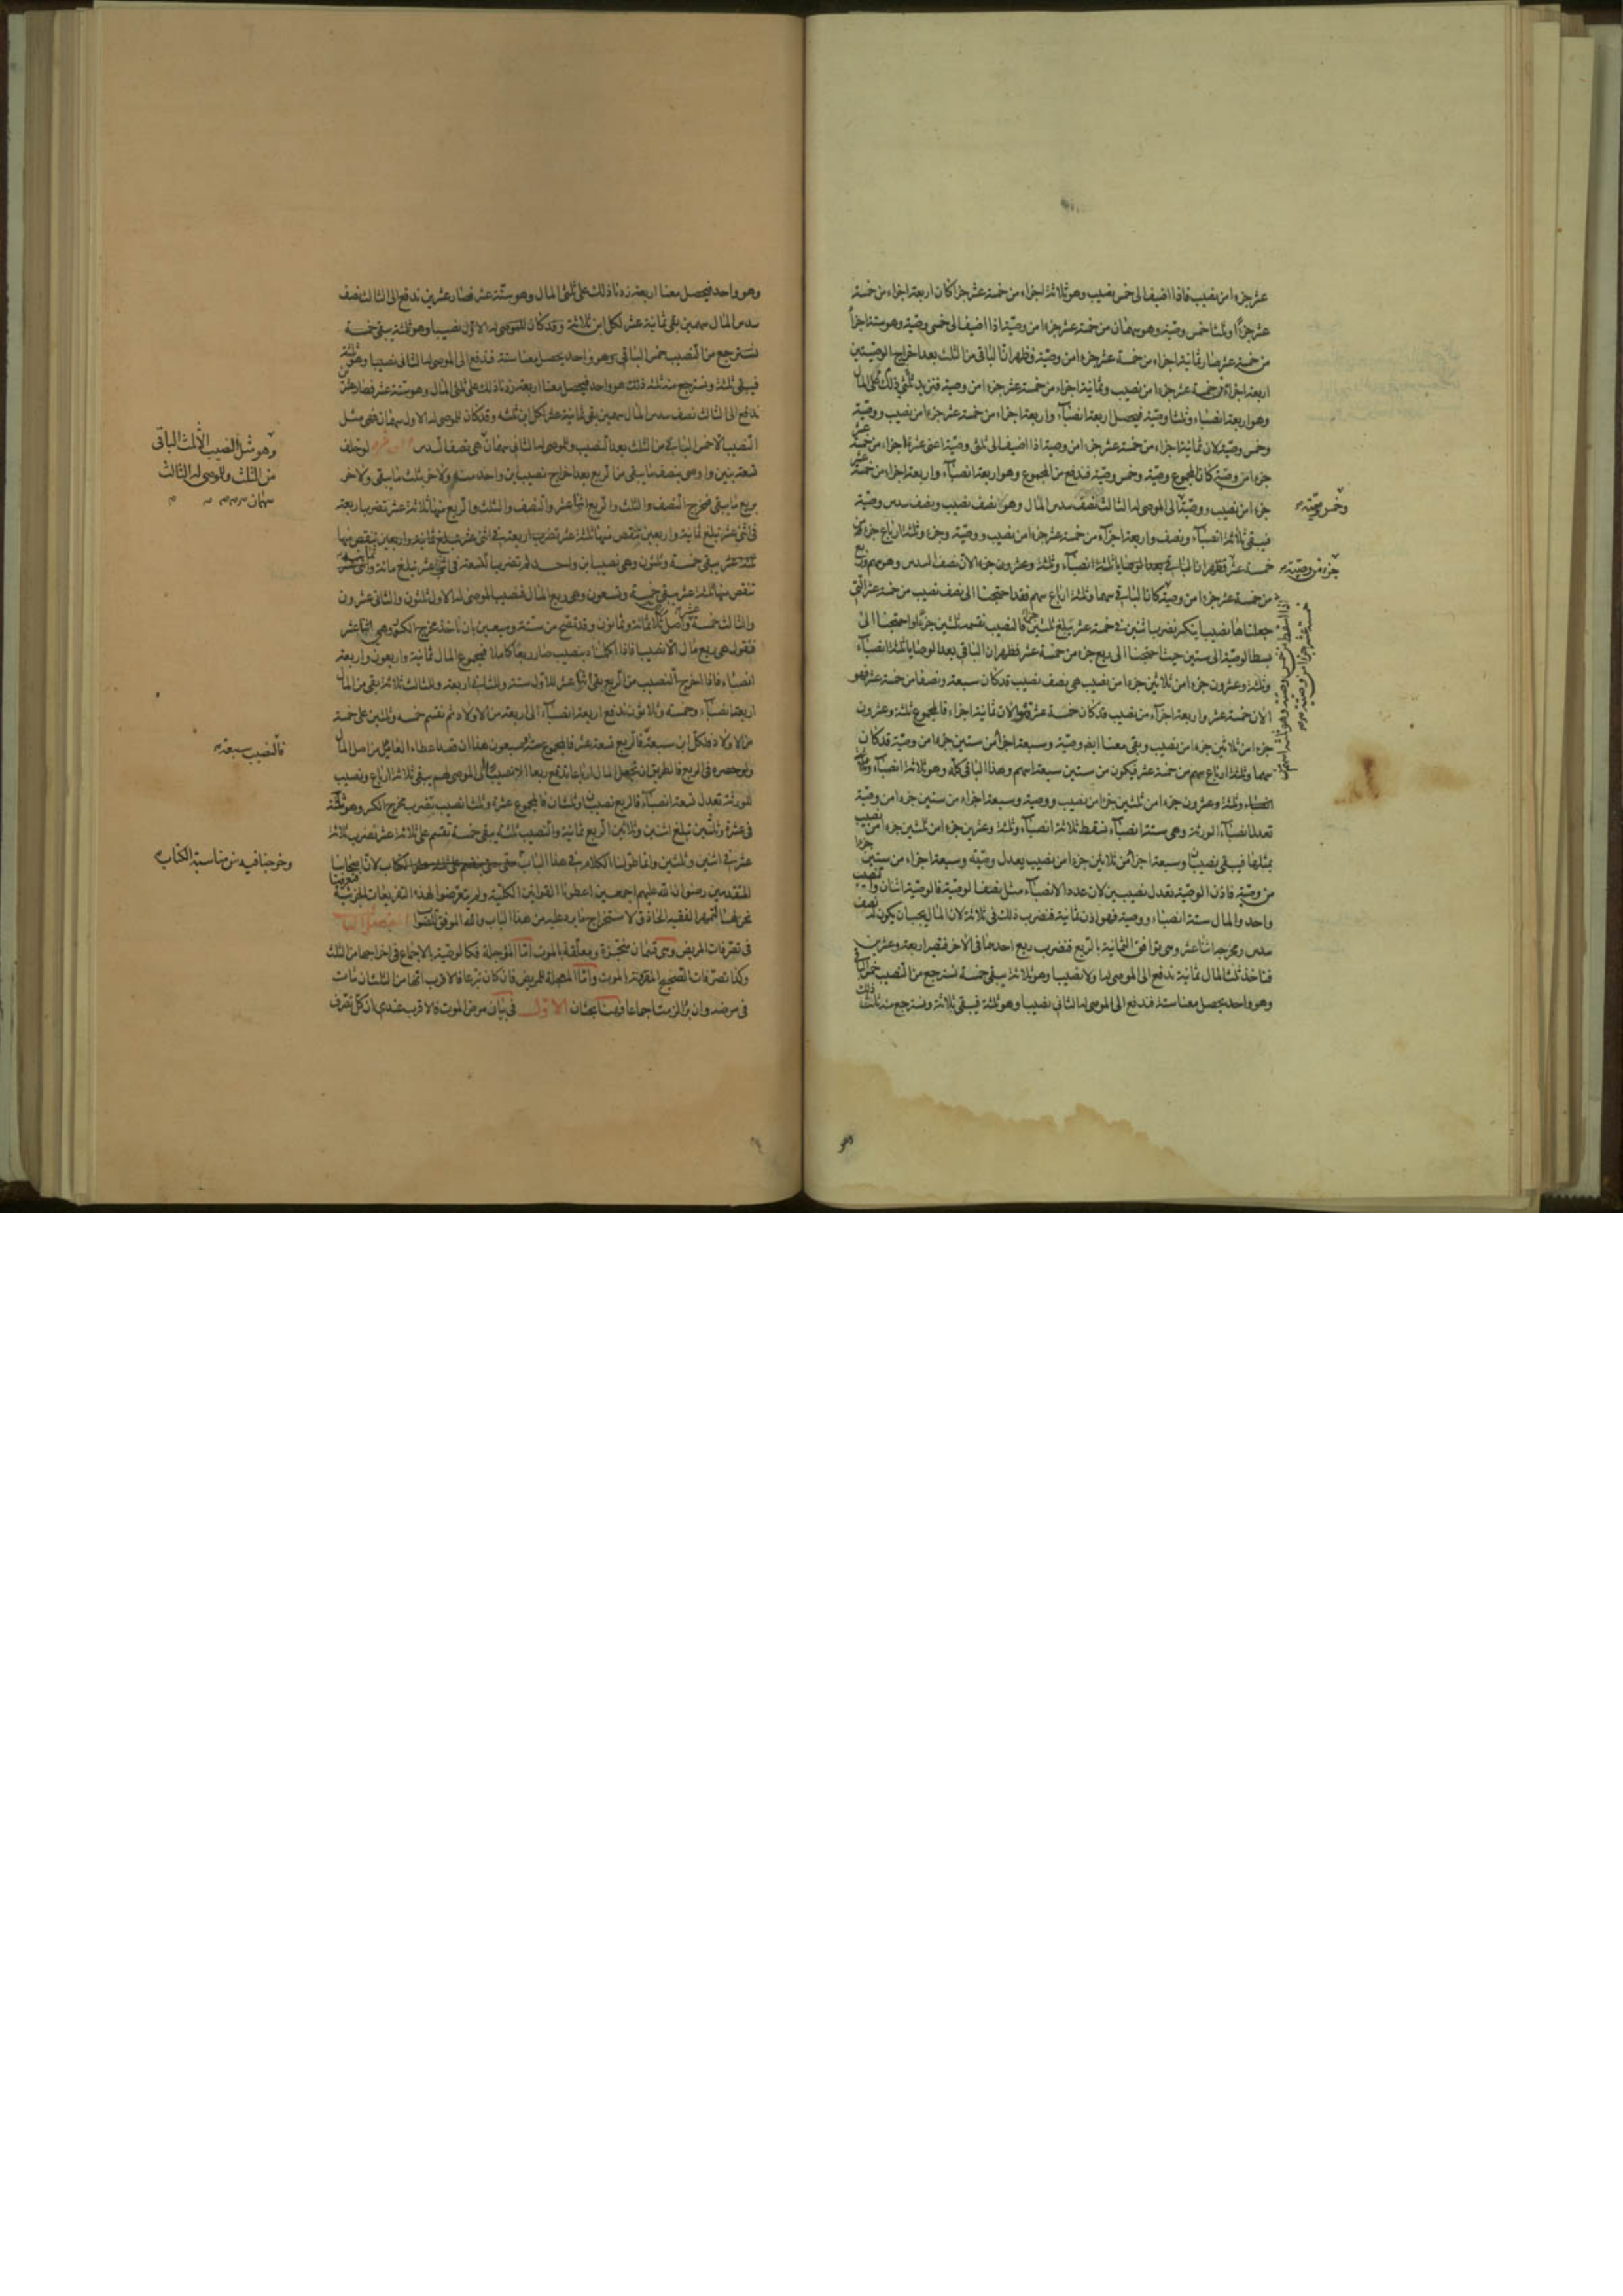 عشر جزءا من نصيب فاذا اضيف الى خمس نصيب وهو ثلاثة اجزاء من خمسة عشر جزءا كان اربعة اجزاء من خمسة
عشر جزءا وثلثا خمس وصية وهو سهمان من خمسة عشر جزءا من وصية اذا اضيف الى خمسى وصية وهو ستة اجزاء
من خمسة عشر صار ثمانية اجزاء من خمسة عشر جزءا من وصية فظهر ان الباقى من الثلث بعد اخراج الوصيتين
اربعة اجزاء من خمسة عشر جزءا من نصيب وثمانية اجزاء من خمسة عشر جزءا من وصية فنزيد ذلك على ثلثى المال
وهو اربعة انصباء وثلثا وصية فيحصل اربعة انصباء واربعة اجزاء من خمسة عشر جزءا من نصيب ووصية
وخمس وصية لان ثمانية اجزاء من خمسة عشر جزءا من وصية اذا اضيف الى ثلثى وصية اعنى عشرة اجزاء من خمسة عشر
جزءا من وصية كان المجموع وصية وخمس وصية فندفع من المجموع وهو اربعة انصباء واربعة اجزاء من خمسة عشر
جزءا من نصيب ووصية الى الموصى له الثالث نصف سدس المال وهو نصف نصيب ونصف سدس وصية
وخمس وصية
فيبقى ثلاثة انصباء ونصف واربعة اجزاء من خمسة عشر جزءا من نصيب ووصية وجزء وثلاثة ارباع جزء من
خمسة عشر فظهر ان الباقى بعد الوصايا ثلاثة انصباء وثلثة وعشرون جزءا لان نصف السدس وهو سهم وربع
جزء من وصية
من خمسة عشر جزءا من وصية كان الباقى سهما وثلاثة ارباع سهم فقد احتجنا الى نصف نصيب من خمسة عشر التى
جعلناها نصيبا ينكسر نضرب اثنين فى خمسة عشر يبلغ ثلثين فالنصيب نقسمه ثلثين جزءا واحتجنا الى
بسط الوصية الى ستين حيث احتجنا الى ربع جزء من خمسة عشر فظهر ان الباقى بعد الوصايا ثلثة انصباء
وثلثة وعشرون جزءا من ثلاثين جزءا من نصيب هى نصف نصيب قد كان سبعة ونصفا من خمسة عشر فهو
الان خمسة عشر واربعة اجزاء من نصيب قد كان خمسة عشر فهو الان ثمانية اجزاء فالمجموع ثلثة وعشرون
جزءا من ثلاثين جزءا من نصيب وبقى معنا ايضا وصية وسبعة اجزاء من ستين جزءا من وصية قد كان
سهما وثلثة ارباع سهم من خمسة عشر فيكون من ستين سبعة اسهم وهذا الباقى كله وهو ثلاثة انصباء وثلثة
وعشرون جزءا من ثلثين جزءا من نصيب ووصية وسبعة اجزاء من ستين جزءا من وصية
تعدل انصباء الورثة وهى ستة انصباء نسقط ثلاثة انصباء وثلثة وعشرين جزءا من ثلثين جزءا من نصيب
بمثلها فيبقى نصيبان وسبعة اجزاء من ثلاثين جزءا من نصيب يعدل وصية وسبعة اجزاء من ستين جزءا
من وصية فاذن الوصية تعدل نصيبين لان عدد الانصباء مثل نصف الوصية فالوصية اثنان والنصيب
واحد والمال ستة انصباء ووصية فهو اذن ثمانية فنضرب ذلك فى ثلاثة لان المال يجب ان يكون له نصف
سدس ومخرجه اثنا عشر وهى توافق الثمانية بالربع فنضرب ربع احدهما فى الاخر فتصير اربعة وعشرين
فناخذ ثلث المال ثمانية ندفع الى الموصى له الاول نصيبا وهو ثلاثة يبقى خمسة نسترجع من النصيب خمس الباقى
وهو واحد يحصل معنا ستة فندفع الى الموصى له الثانى نصيبا وهو ثلثة فيبقى ثلاثة ونسترجع منه ثلث ذلك
وهو
وهو واحد فيحصل معنا اربعة زدنا ذلك على ثلثى المال وهو ستة عشر فصار عشرين ندفع الى الثالث نصف
سدس المال سهمين بقى ثمانية عشر لكل ابن ثلاثة وقد كان للموصى له الاول نصيبا وهو ثلثة يبقى خمسة
نسترجع من النصيب خمس الباقى وهو واحد يحصل معنا ستة فندفع الى الموصى له الثانى نصيبا وهو ثلثة
فيبقى ثلثة ونسترجع منه ثلثة ذلك هو واحد فيحصل معنا اربعة زدنا ذلك على ثلثى المال وهو ستة عشر فصار عشرين
ندفع الى الثالث نصف سدس المال سهمين بقى ثمانية عشر لكل ابن ثلثة وقد كان للموصى له الاول سهمان فهى مثل
النصيب الا خمس الباقى من الثلث بعد النصيب وللموصى له الثانى سهمان هى نصف السدس لو خلف
وهو مثل النصيب الا ثلث الباقى
من الثلث وللموصى له الثالث
سهمان
تسعة بنين واوصى بنصف ما يبقى من الربع بعد اخراج نصيب ابن واحد منه ولاخر بثلث ما يبقى ولاخر
بربع ما يبقى فمخرج النصف والثلث والربع اثنا عشر والنصف والثلث والربع منها ثلاثة عشر تضرب اربعة
فى اثنى عشر تبلغ ثمانية واربعين تنقص منها ثلثة عشر تضرب اربعة فى اثنى عشر تبلغ ثمانية واربعين تنقص منها
ثلثة عشر يبقى خمسة وثلثون وهى نصيب ابن واحد ثم تضرب التسعة فى اثنى عشر تبلغ مائة وثمانية
تنقص منها ثلثة عشر يبقى خمسة وتسعون وهى ربع المال فنصيب الموصى له الاول ثلثون والثانى عشرون
والثالث خمسة عشر واصل المال ثلاثمائة وثمانون وقد تصح من ستة وسبعين بان ناخذ مخرج الكسر وهى اثنا عشر
فنقول هى ربع مال الا نصيبا فاذا اكملناه بنصيب صار ربعا كاملا فمجموع المال ثمانية واربعون واربعة
انصباء فاذا اخرج النصيب من الربع بقى اثنا عشر للاول ستة وللثانى اربعة وللثالث ثلاثة بقى من المال
اربعة انصباء وخمسة وثلاثون ندفع اربعة انصباء الى اربعة من الاولاد ثم نقسم خمسة وثلثين على خمسة
من الاولاد فلكل ابن سبعة فالربع تسعة عشر فالمجموع ستة وسبعون هذا ان قصد اعطاء الفائل من اصل المال
فالنصيب سبعة
ولو حصره فى الربع فالطريق ان تجعل المال ارباعا تدفع ربعا الا نصيبا الى الموصى لهم يبقى ثلاثة ارباع ونصيب
للورثة تعدل تسعة انصباء فالربع نصيبان وثلثان فالمجموع عشرة وثلثا نصيب تضرب مخرج الكسر وهو ثلثة
فى عشرة وثلثين تبلغ اثنين وثلاثين الربع ثمانية والنصيب ثلثة يبقى خمسة تقسم على ثلاثة عشر تضرب ثلاثة
عشر فى اثنين وثلثين وانما طولنا الكلام فى هذا الباب حتى لان اصحابنا
وخرجنا فيه عن مناسبة الكتاب
المتقدمين رضوان الله عليهم اجمعين اعطونا القوانين الكلية ولم يتعرضوا لهذه التفريعات الجزئية فتعرضنا
نحن لها ليتمهر الفقيه الحاذق لاستخراج ما يرد عليه من هذا الباب والله الموفق للصواب
فى تصرفات المريض وهى قسمان منجزة ومعلقة بالموت اما المؤجلة فكالوصية بالاجماع فى اخراجها من الثلث
وكذا تصرفات الصحيح المقرونة بالموت واما المعجلة للمريض فان كان تبرعا فالاقرب انها من الثلث ان مات
فى مرضه وان برا لزمت اجماعا وهنا بحثان الاول فى بيان مرض الموت والاقرب عندى ان كل تصرف